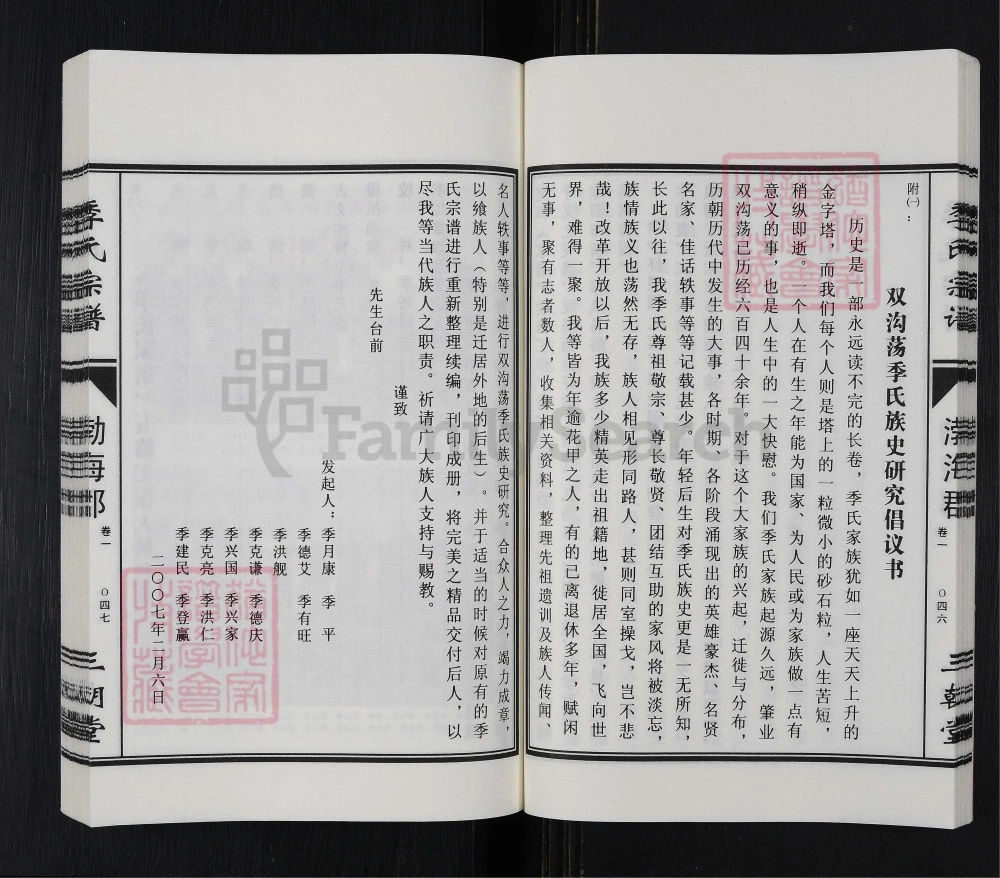 附㈠：
双沟荡季氏族史研究倡议书
历史是一部永远读不完的长卷，季氏家族犹如一座天天上升的
金字塔，而我们每个人则是塔上的一粒微小的砂石粒，人生苦短，
稍纵即逝。一个人在有生之年能为国家、为人民或为家族做一点有
意义的事，也是人生中的一大快慰。我们季氏家族起源久远，肇业
双沟荡已历经六百四十余年。对于这个大家族的兴起，迁徙与分布，
历朝历代中发生的大事，各时期、各阶段涌现出的英雄豪杰、名贤
名家、佳话轶事等等记载甚少，年轻后生对季氏族史更是一无所知，
长此以往，我季氏尊祖敬宗、尊长敬贤、团结互助的家风将被淡忘，
族情族义也荡然无存，族人相见形同路人，甚则同室操戈，岂不悲
哉！改革开放以后，我族多少精英走出祖籍地，徙居全国，飞向世
界，难得一聚。我等皆为年逾花甲之人，有的已离退休多年，赋闲
无事，聚有志者数人，收集相关资料，整理先祖遗训及族人传闻、
季氏宗谱
渤海郡
卷一
〇四六
三朝堂
名人轶事等等，进行双沟荡季氏族史研究。合众人之力，竭力成章，
以飨族人（特别是迁居外地的后生）。并于适当的时候对原有的季
氏宗谱进行重新整理续编，刊印成册，将完美之精品交付后人，以
尽我等当代族人之职责。祈请广大族人支持与赐教。
谨致
先生台前
发起人：季月康 季 平
季德艾 季有旺
季洪舰
季克谦 季德庆
季兴国 季兴家
季克亮 季洪仁
季建民 季登赢
二〇〇七年二月六日
季氏宗谱
渤海郡
卷一
〇四七
三朝堂
FamilySearch